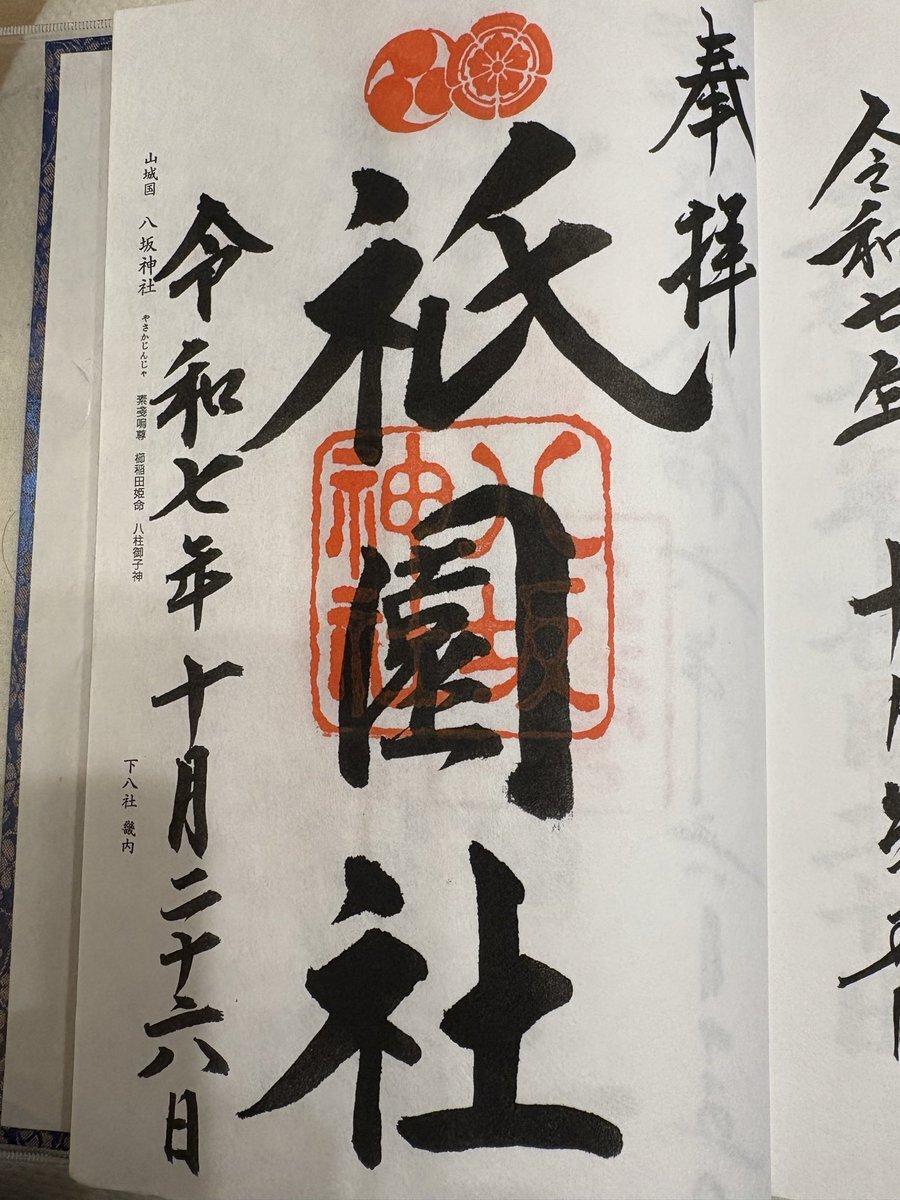 令和七年
奉拝
祇園社
八坂
神社
令和七年十月二十六日
山城国 八坂神社 やさかじんじゃ 素戔嗚尊 櫛稲田姫命 八柱御子神
下八社 畿内